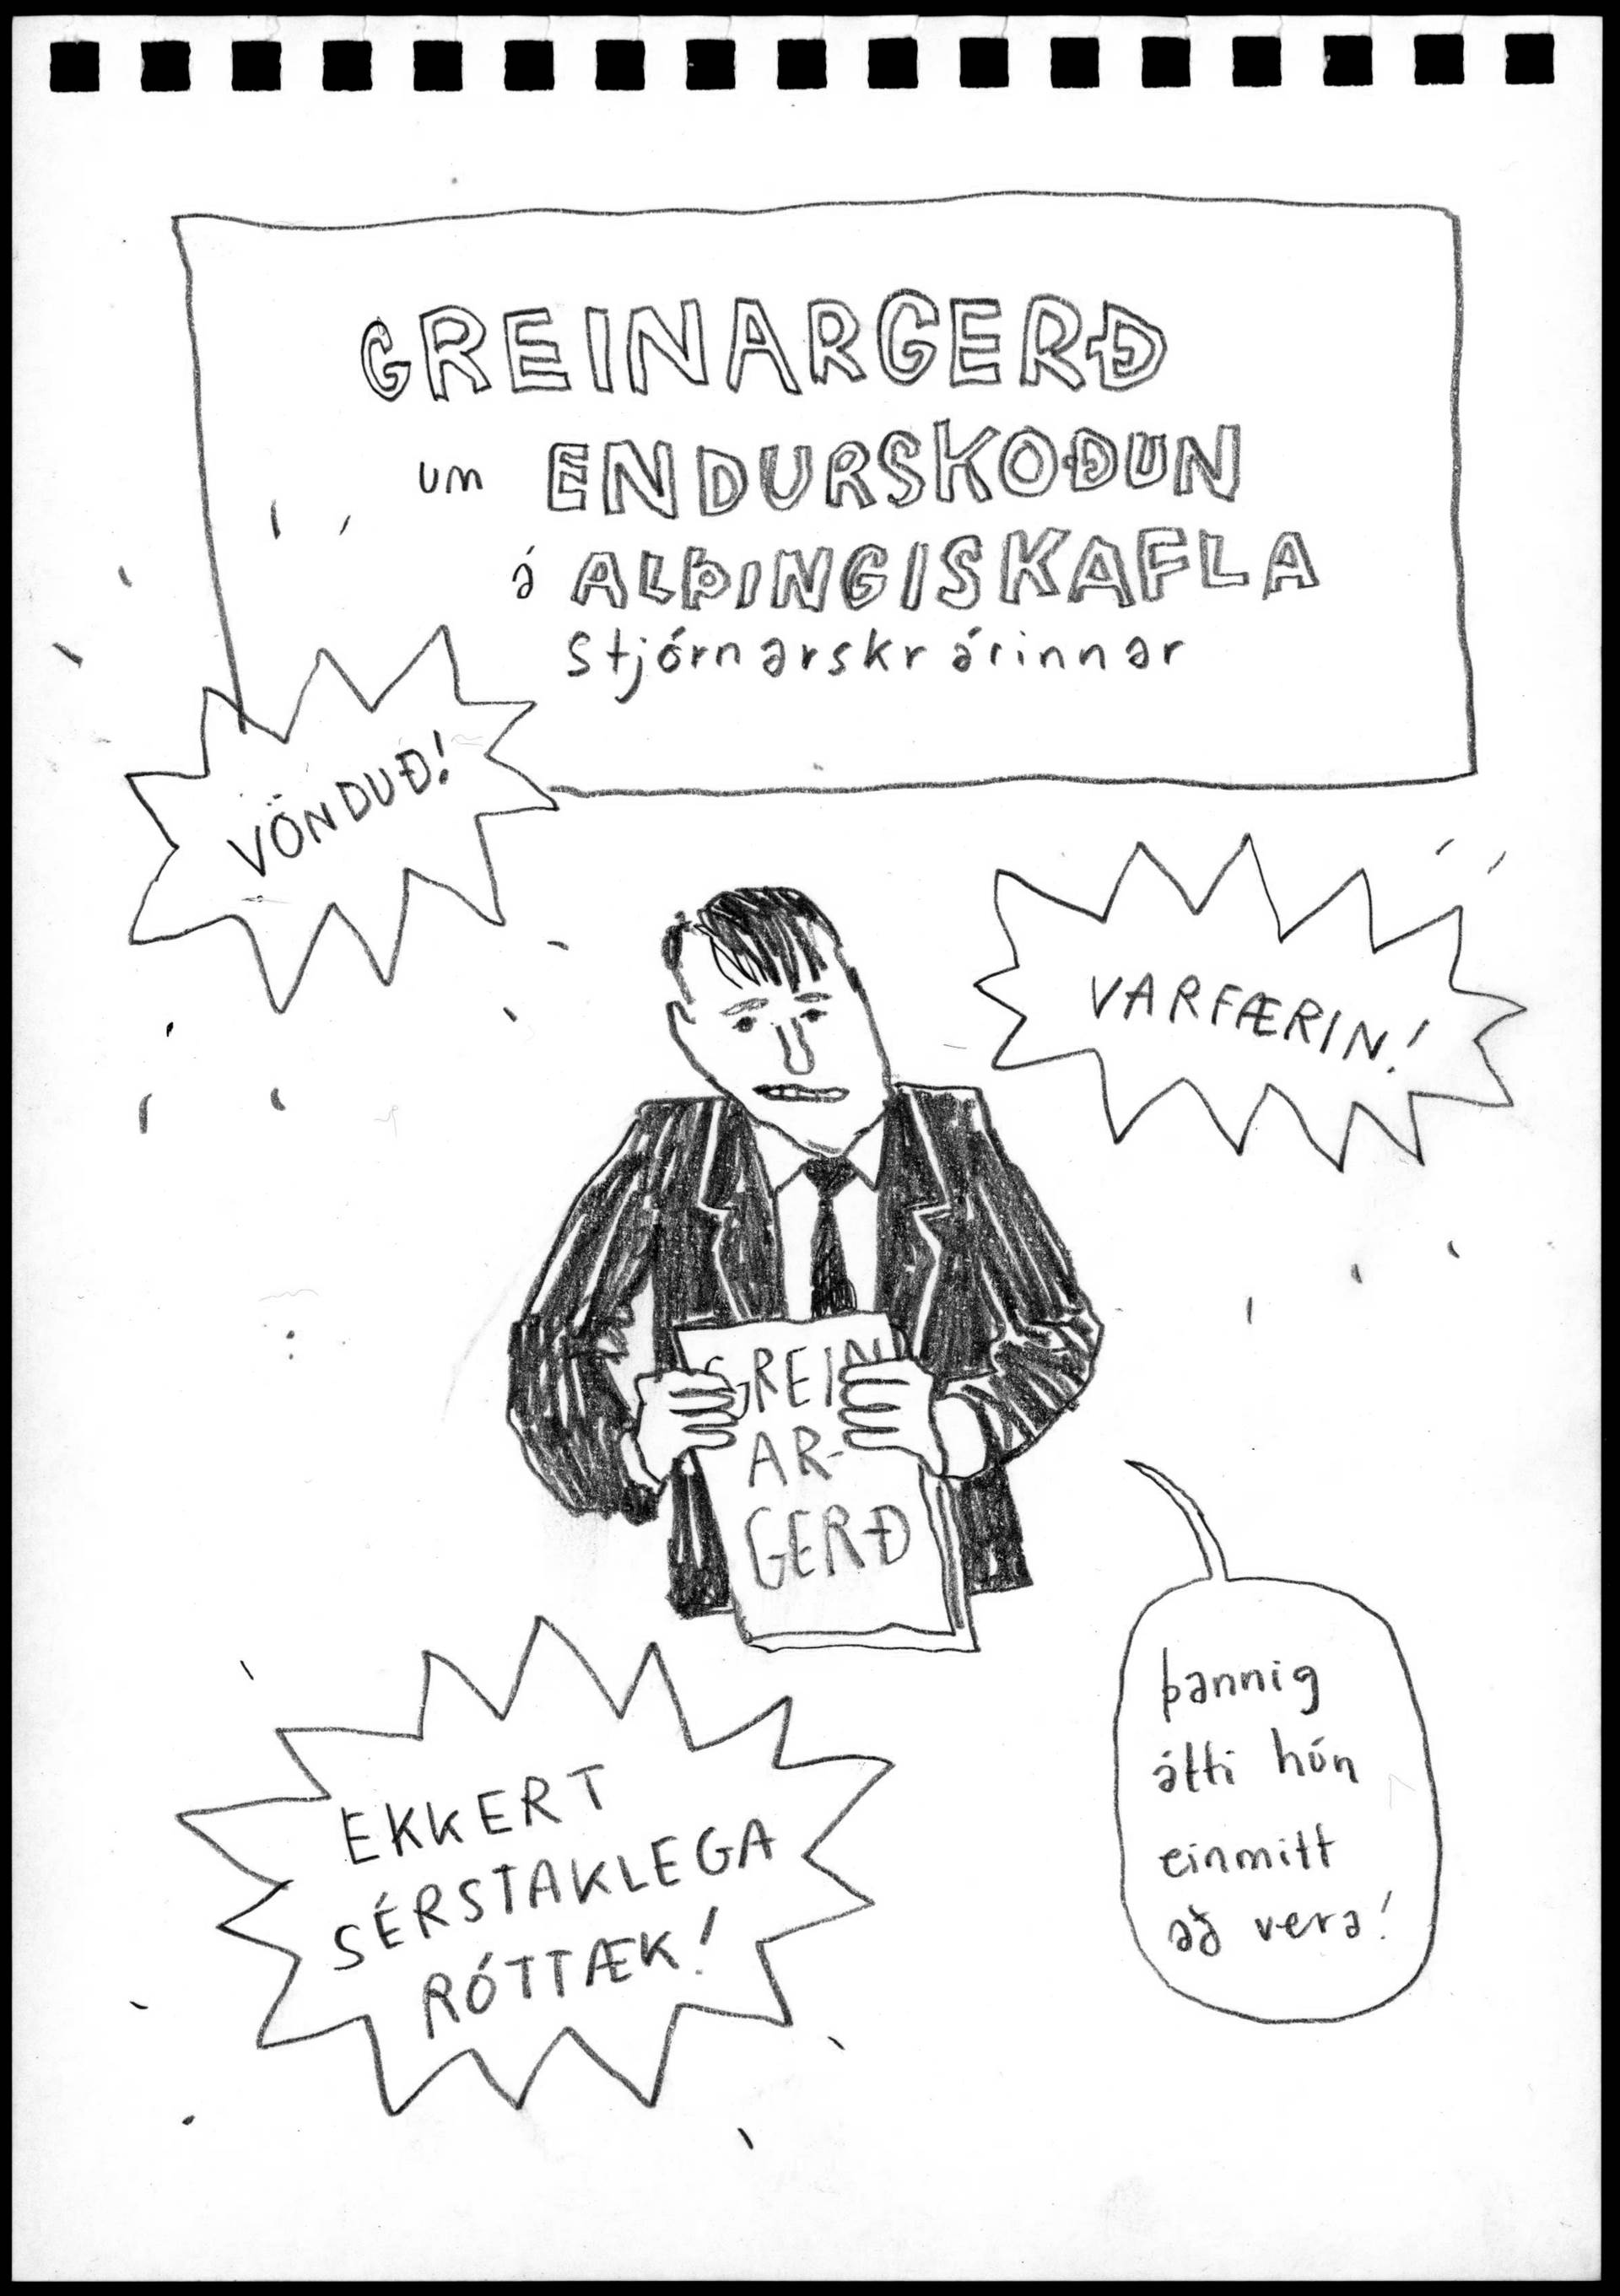 GREINARGERÐ
um ENDURSKOÐUN
á ALÞINGISKAFLA
stjórnarskrárinnar
VÖNDUÐ!
VARFÆRIN!
GREIN
AR-
GERÐ
EKKERT
SÉRSTAKLEGA
RÓTTÆK!
þannig
átti hún
einmitt
að vera!